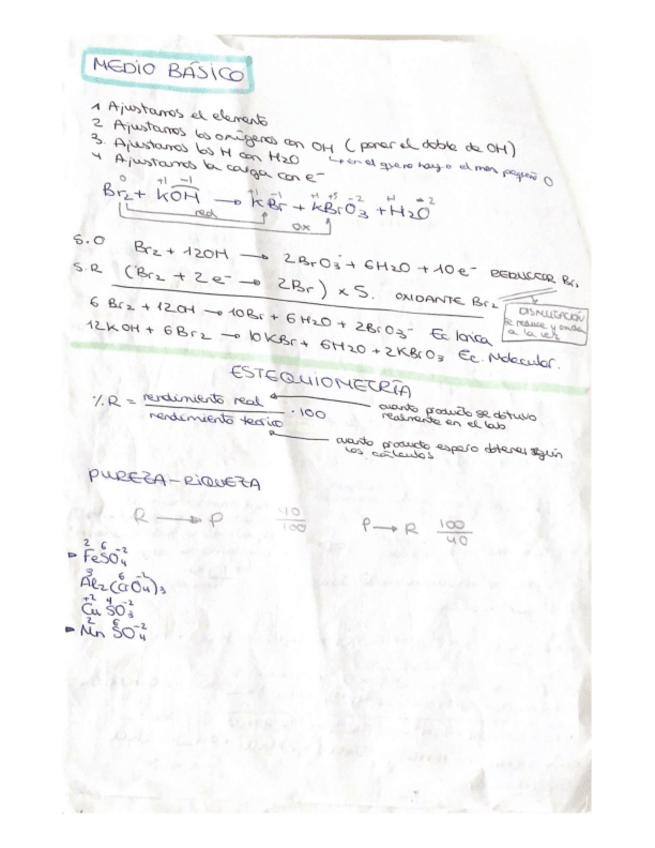 MEDIO BÁSICO
1 Ajustamos el elemento
2 Ajustamos los oxígenos con OH (poner el doble de OH)
3. Ajustamos los H con H2O ↳ en el que no haya o el más pequeño O
4 Ajustamos la carga con e-
0 +1 -1 +1 -1 +1 +5 -2 +1 -2
Br2 + KOH → KBr + KBrO3 + H2O
red
ox
S.O Br2 + 12OH → 2BrO3- + 6H2O + 10e- REDUCTOR Br2
S.R (Br2 + 2e- → 2Br) x 5. OXIDANTE Br2
DISMUTACIÓN
se reduce y oxida
a la vez
6Br2 + 12OH → 10Br + 6H2O + 2BrO3- Ec Iónica
12KOH + 6Br2 → 10KBr + 6H2O + 2KBrO3 Ec. Molecular.
ESTEQUIOMETRÍA
%R = rendimiento real / rendimiento teórico · 100
cuanto producto se obtuvo
realmente en el lab
cuanto producto espero obtener según
los cálculos
PUREZA-RIQUEZA
R → P 40/100 P → R 100/40
2 6 -2
FeSO4
3 6 -2
Al2(CrO4)3
+2 4 -2
Cu SO3
2 6 -2
Mn SO4